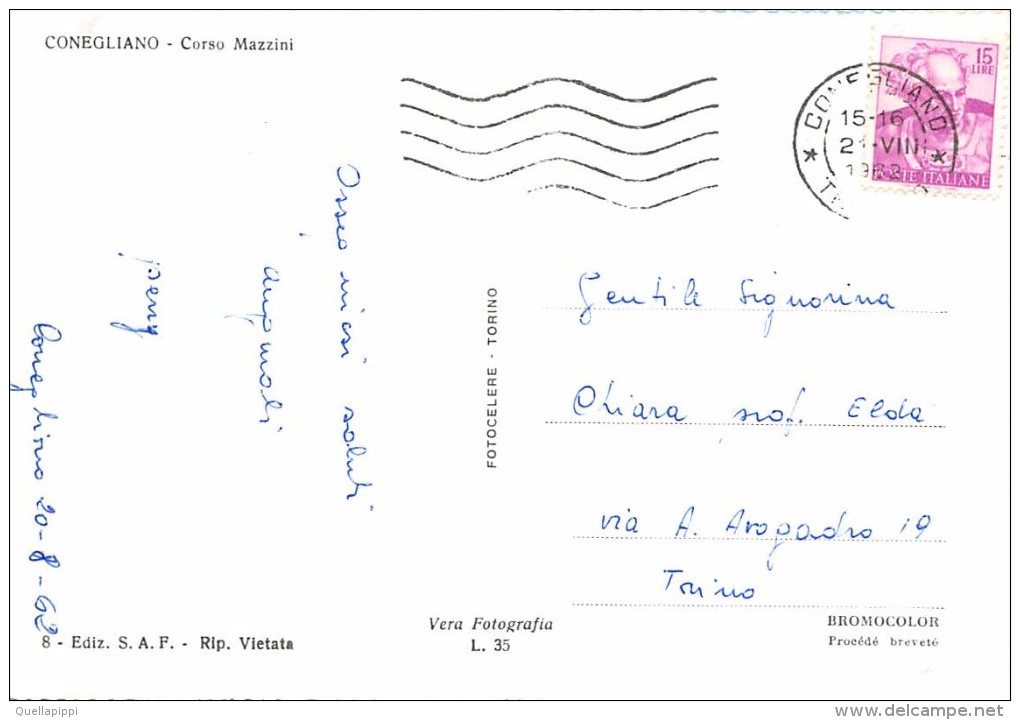 CONEGLIANO - Corso Mazzini
15
LIRE
POSTE ITALIANE
CONEGLIANO
15-16
21-VIII
1962
saluti
Conegliano 20-8-62
FOTOCELERE - TORINO
Gentile Signorina
Chiara prof. Elda
via A. Avogadro 19
Torino
8 - Ediz. S. A. F. - Rip. Vietata
Vera Fotografia
L. 35
BROMOCOLOR
Procédé breveté
Quellapippi
delcampe.net